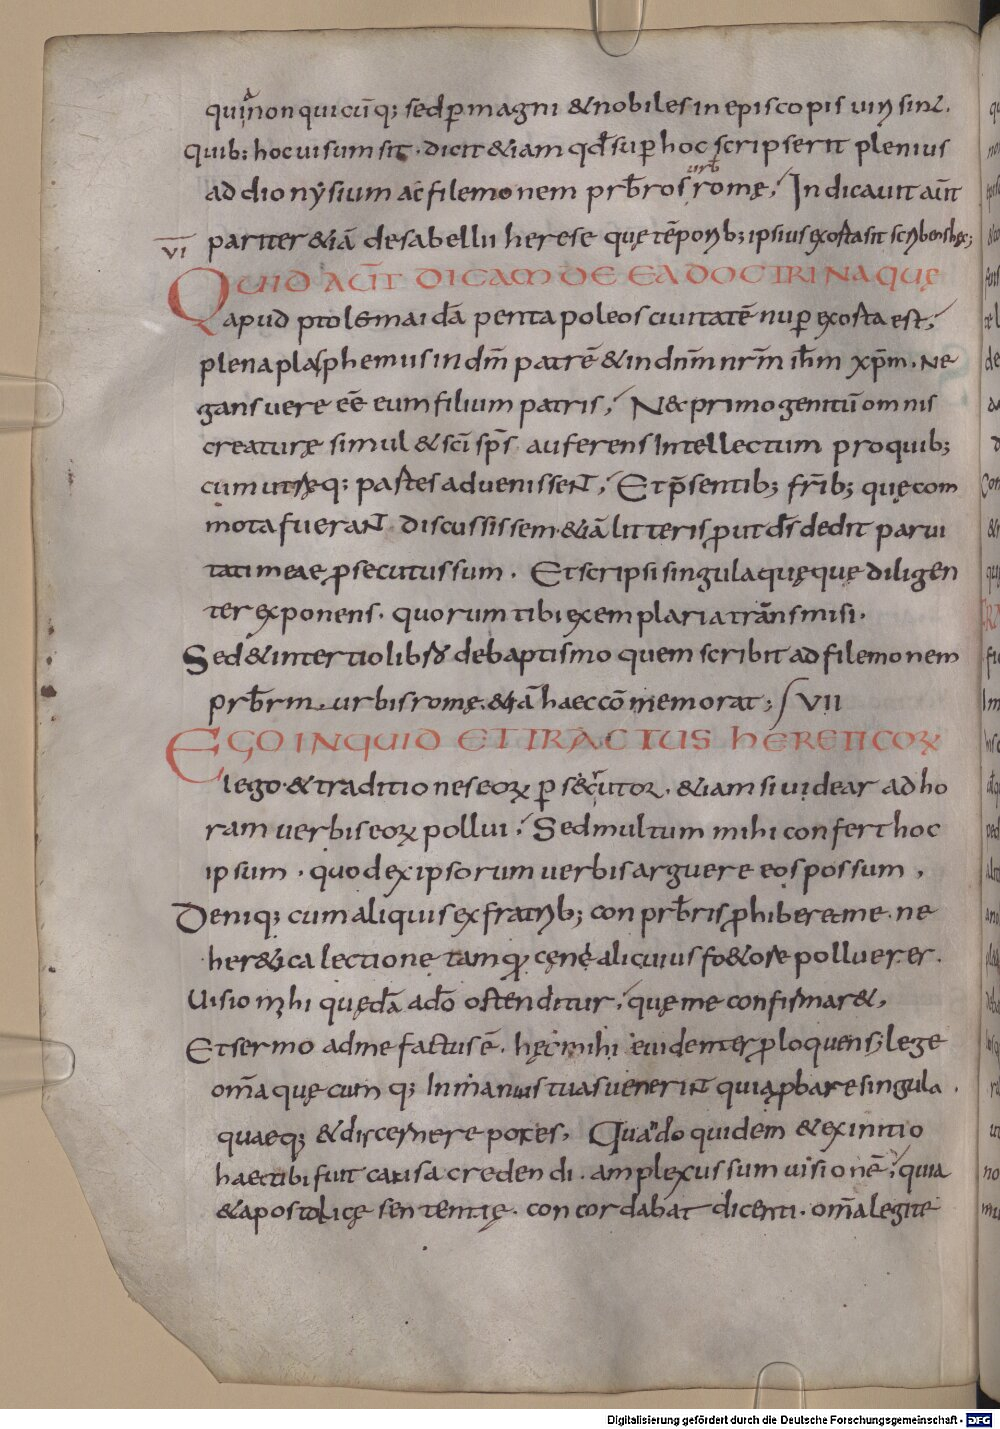 quia non quicūq; sed p̲ magni & nobiles in episcopis uiri sint.
quib; hoc uisum sit. dicit &iam qđ sup̲ hoc scripserit plenius
ad dionẏsium ac̄ filemonem prb̄ros urb̄ romę; Indicauit aūt
pariter &iā de sabellii herese quę tēporib; ipsius exorta sit scribens hęc;
VI
QUID AŪT DICAM DE EA DOCTRINA QUĘ
apud ptolemaidā pentapoleos ciuitatē nup̲ exorta est;
plena plasphemiis in dm̄ patrē & in dn̄m nrm̄ ihm̄ xp̄m. Ne
gans uere eē eum filium patris; Nec primogenitū omnis
creaturę simul & sc̄i sp̄s auferens Intellectum pro quib;
cum utręq; partes aduenissent; Et p̄sentib; fr̄ib; quę com
mota fuerant discussissem. &iā litteris prout ds̄ dedit parui
tati meae prosecutus sum. Et scripsi singula quęque diligen
ter exponens. quorum tibi exemplaria transmisi.
Sed & in tertio libro de baptismo quem scribit ad filemonem
prb̄rm. urbis romę. &iā haec cōmemorat; VII
EGO INQUID ET TRACTUS HERETICOꝜ
lego. & traditiones eoꝝ p̲secutor. &iam si uidear ad ho
ram uerbis eoꝝ pollui; Sed multum mihi confert hoc
ipsum. quod ex ipsorum uerbis arguere eos possum,
Deniq; cum aliquis ex fratrib; conprb̄ris prohiber& me. ne
her&ica lectione tamq̄ cęne alicuius fo&ore polluerer.
Uisio mihi quędā a dō ostenditur; quę me confirmar&,
Et sermo ad me factus ē. hęc mihi euidenter proloquens; lege
om̄a quęcumq; In manus tuas uenerint quia probare singula.
quaeq; & discernere potes, Quando quidem & ex initio
haec tibi fuit causa credendi. amplexus sum uisionē; quia
& apostolicę sententię. concordabat dicenti. om̄a legite
Digitalisierung gefördert durch die Deutsche Forschungsgemeinschaft - DFG